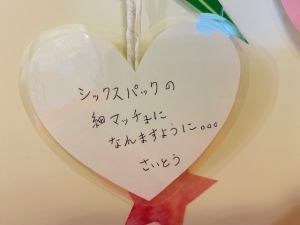 シックスパックの
細マッチョに
なれますように。。。
さいとう